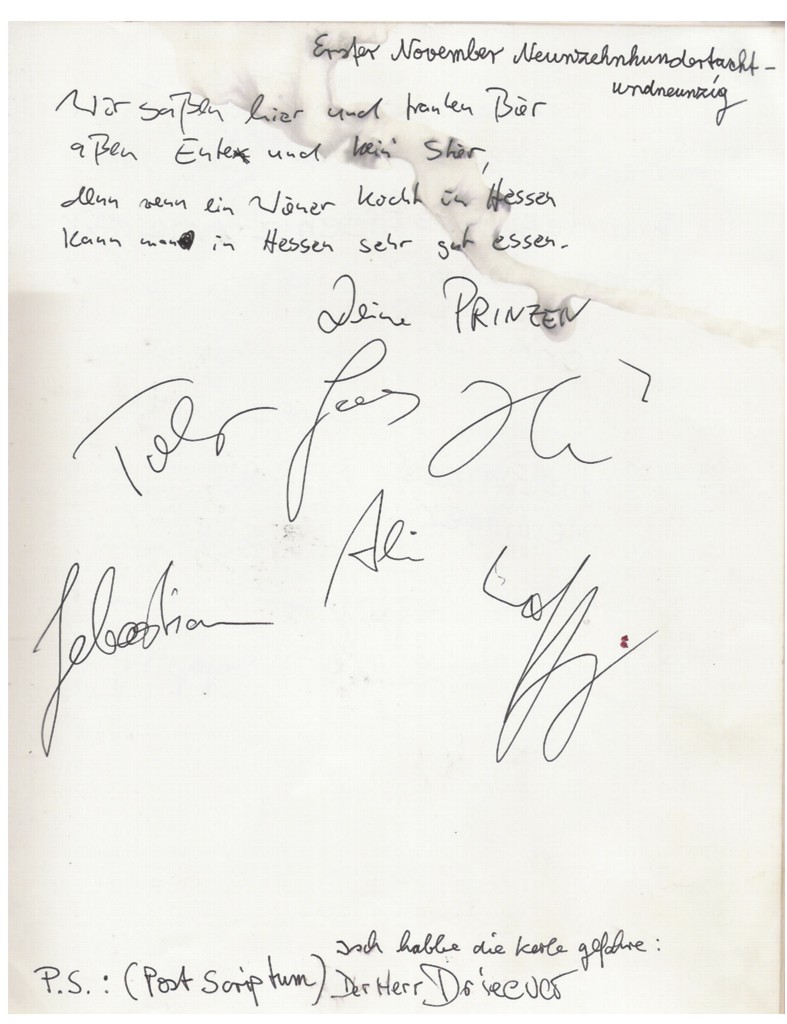 Erster November Neunzehnhundertacht-
undneunzig
Wir saßen hier und tranken Bier
aßen Ente und kein Stier,
denn wenn ein Wiener kocht in Hessen
kann man in Hessen sehr gut essen.
Deine PRINZEN
Jens
Ali
Sebastian
isch habbe die Kerle gefahre:
P.S.: (Post Scriptum) Der Herr